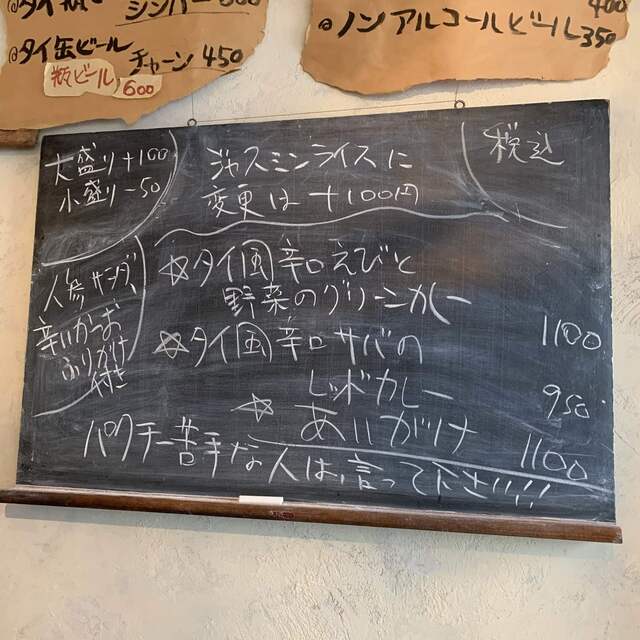 シンハー 600
@タイ缶ビール
チャーン 450
瓶ビール 600
400
@ノンアルコールビール 350
大盛り+100
小盛り-50
ジャスミンライスに
変更は+100円
税込
人参サラダ、
辛いかつお
ふりかけ
付き
☆タイ風辛口えびと
野菜のグリーンカレー
1100
☆タイ風辛口サバの
レッドカレー
950
☆あいがけ
1100
パクチー苦手な人は、言って下さい!!